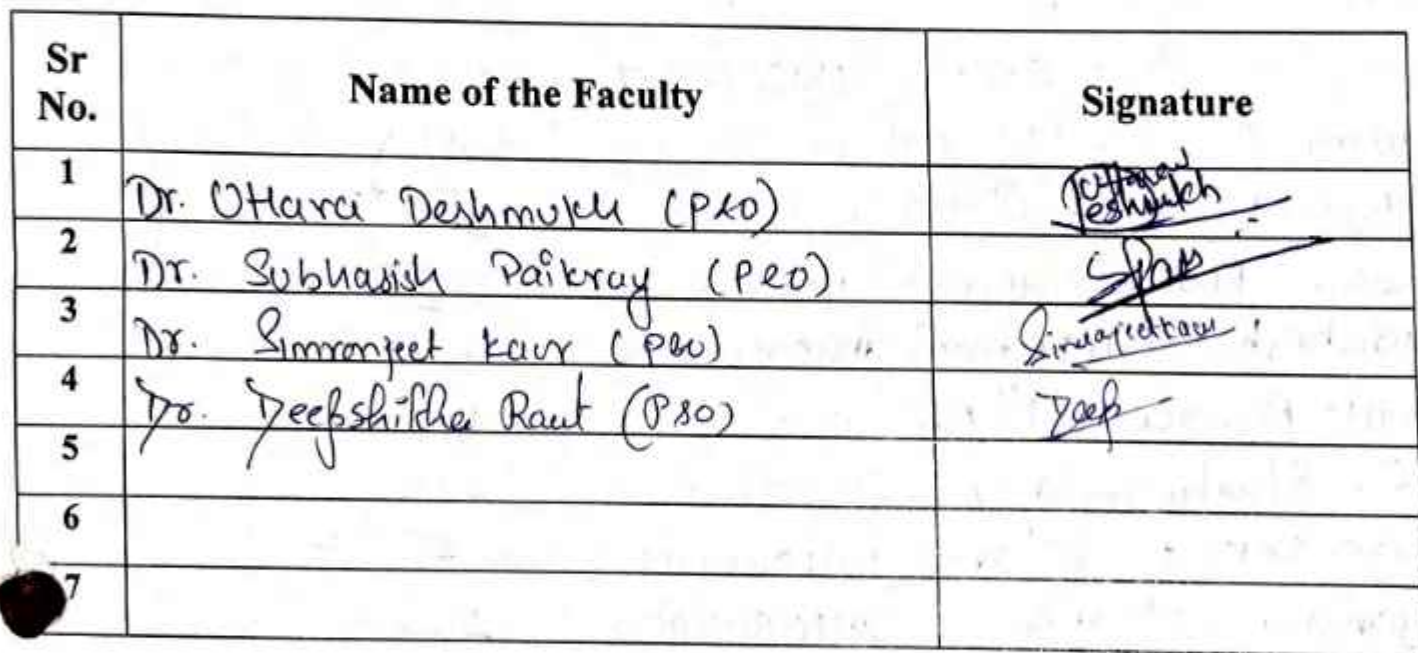 Sr No. Name of the Faculty Signature
1 Dr. Uttara Deshmukh (PRO)
2 Dr. Subhasish Paikray (PRO)
3 Dr. Simranjeet Kaur (PRO) Simranjeetkaur
4 Dr. Deepshikha Raut (PSO) Deep
5
6
7